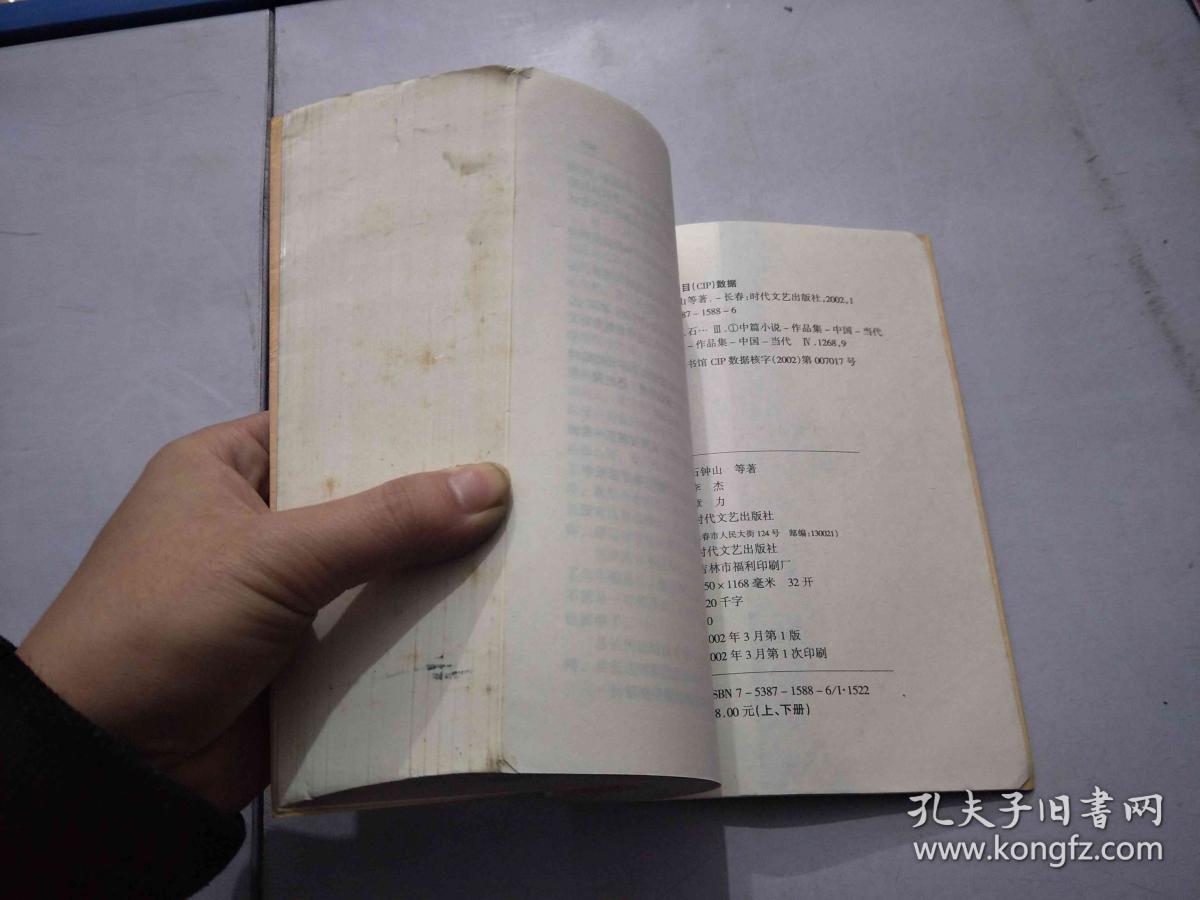 目(CIP)数据
山等著.－长春:时代文艺出版社,2002,1
87－1588－6
石… Ⅲ.①中篇小说－作品集－中国－当代
－作品集－中国－当代 Ⅳ.1268,9
书馆 CIP 数据核字(2002)第 007017 号
石钟山 等著
李 杰
力
时代文艺出版社
春市人民大街 124 号 邮编:130021)
时代文艺出版社
吉林市福利印刷厂
50×1168 毫米 32 开
20 千字
0
002 年 3 月第 1 版
002 年 3 月第 1 次印刷
SBN 7－5387－1588－6/I·1522
8.00 元(上、下册)
孔夫子旧书网
www.kongfz.com